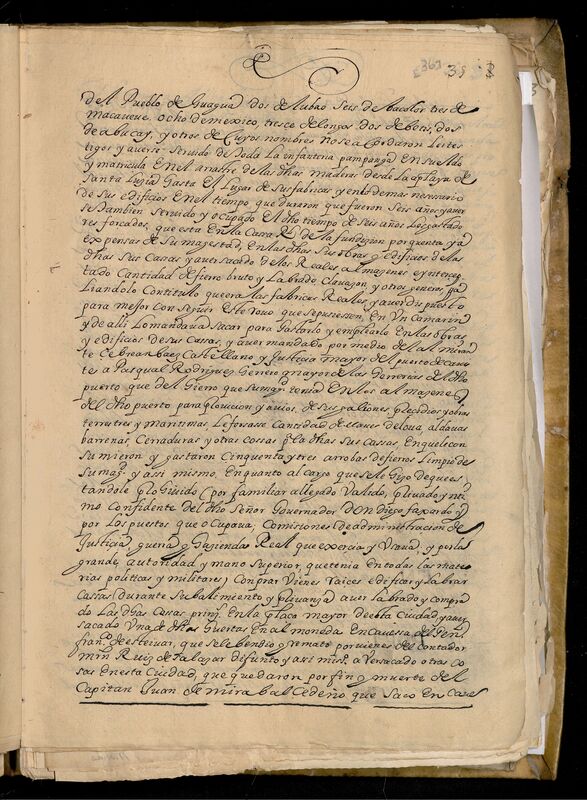 383
del Pueblo de Guagua dos de Lubao Seis de Bacolor tres de
macaveve ocho de mexico, trese de longos, dos de betis, dos
de abucay, y otros de Cuyos nombres no se acordaron los tes
tigos y averse servido de toda la infanteria pampanga En su Alis
y matricula En el arrastre de las dhas maderas desde la playa de
Santa Luzia hasta El Lugar de sus fabricas y en lo demas nesesario
de sus edificios En el tiempo que duraron que fueron Seis años, y aver
se tambien servido y ocupado El dho tiempo de seis años los gastado
res forçados, que esta En la Cassa Rl de la fundizion por quenta y a
expensas de su magestad, En las dhas sus obras y edificios de las
dhas sus Cassas y aver sacado de los Reales almazenes
tado Cantidad de fierro bruto y Labrado Clavazon, y otros generos,
Liandolo Con titulo que era las fabricas Reales, y aver dispuesto
para mejor Conseguir Este que se pusiessen, En Un Camarin
y de alli Lo mandava Sacar para gastarlo y emplearlo En las obras
y edificios de sus Cassas, y aver mandado por medio del almiran
te Cebrean baez Castellano y Justicia mayor del puerto de cavi
te a Pasqual Rodriguez herrero mayor de las herrerias del dho
puerto que del hierro que su magd tenia En los almazenes
del dho puerto para provicion y avios de sus galeones, precidios y obras
terrestres y maritimas, Le forxasse Cantidad de claves de loza, aldavas
barrenas, Cerraduras y otras cossas pa la dhas sus Cassas, En que le con
sumieron y gastaron Cinquenta y tres arrobas de fierros Limpio de
su magd y assi mismo, En quanto al cargo que se le hizo de que es
tandole prohivido (por familiar allegado Valido, privado y nti
mo Confidente del dho Señor Governador DOn diego faxardo y
por Los puestos que ocupava, Comisiones de administracion de
Justicia, guerra y Hazienda Real que exercia y Usava, y por la
grande autoridad y mano Superior, que tenia En todas las mate
rias politicas y militares) Comprar Vienes raices edificar y labrar
Cassas (durante Su balimiento y privanza) aver labrado y compra
do Las dhas Casas prinl En la plaça mayor de esta Ciudad, y aver
sacado Una de dhas Huertas En almoneda En caussa del Gen
franco de esteivar, que se le bendio y remato por vienes del Contador
mrn Ruiz de Salazar defunto, y assi mismo a ver sacado otras co
sas En esta Ciudad, que quedaron por fin y muerte del
Capitan Juan de mirabal Cedeño que Saco En Cave